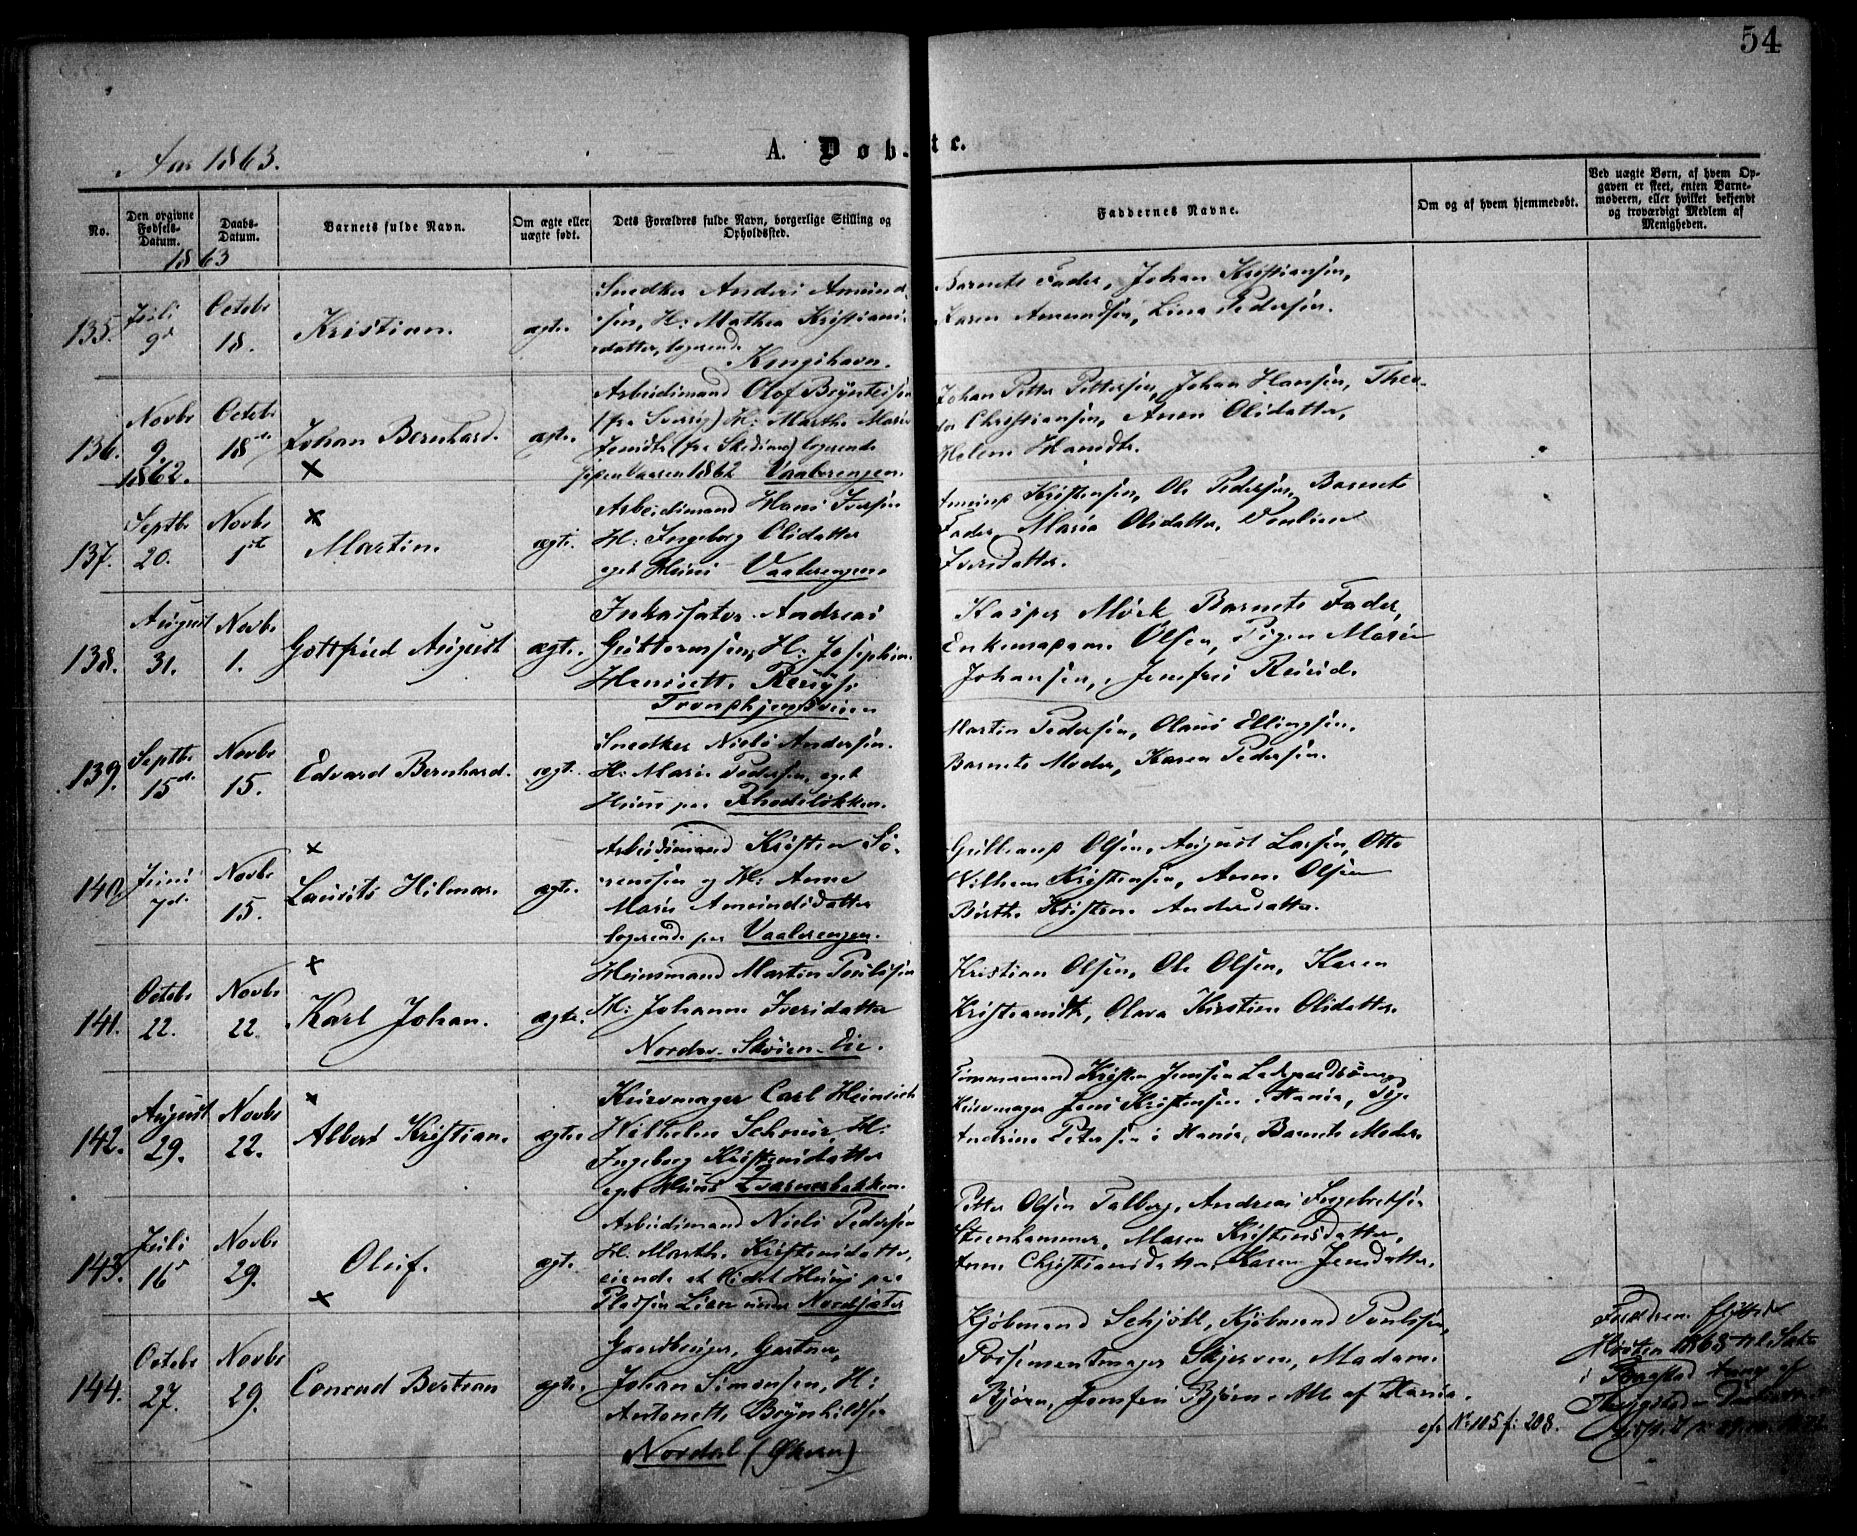 54
Aar 1863.
A. Døbte.
No.
Den opgivne Fødsels-Datum.
Daabs-Datum.
Barnets fulde Navn.
Om ægte eller uægte født.
Dets Forældres fulde Navn, borgerlige Stilling og Opholdssted.
Faddernes Navne.
Om og af hvem hjemmedøbt.
Ved uægte Børn, af hvem Op-
gaven er skeet, enten Barne-
moderen, eller hvilket bekjendt
og troværdigt Medlem af
Menigheden.
1863
135. Juli 9d Octobr 18. Kristian. ægte.
Snedker Anders Amund-
sen, H: Mathea Kristians-
datter, logerende
Kongshavn.
Barnets Fader, Johan Kristiansen,
Karen Amundsen, Lina Pedersen.
136. Novbr 9. 1862. Octobr 18de Johan Bernhard. ægte.
Arbeidsmand Olof Bryntesen
(fra Sverig) H: Marthe Marie
Jensdtr (fra Skedsmo) logerende
siden Vaaren 1862 Vaalerengen.
Johan Petter Pettersen, Johan Hansen, Theo-
dor Christiansen, Anne Olsdatter,
Helene Hansdtr.
137. Septbr 20. Novbr 1ste Martin. ægte.
Arbeidsmand Hans Iversen
H: Ingeborg Olsdatter
eget Huus Vaalerengen.
Kristensen, Ole Pedersen, Barnets
Fader, Maria Olsdatter,
Iversdatter.
138. August 31. Novbr 1. Gottfried August ægte.
Inkassator Andreas
Guttormsen, H: Josephine
Henriette
Trondhjemsveien
Kasper Mørk, Barnets Fader,
Enkemadame Olsen, Pigen Marie
Johansen, Jomfru
139. Septbr 15d. Novbr 15. Edvard Bernhard. ægte.
Snedker Niels Andersen.
H: Marie Pedersen, eget
Huus paa Rodeløkken.
Martin Pedersen, Olaus Ellingsen,
Barnets Moder, Karen Pedersen.
140. Juni 7d. Novbr 15. Laurits Hilmar. ægte.
Arbeidsmand Kristen Sø-
rensen og H: Anne
Marie Amundsdatter
logerende paa Vaalerengen.
Gulbrand Olsen, August Larsen, Otto
Wilhelm Kristensen, Anne Olsen
Birthe Kristine Andersdatter.
141. Octobr 22. Novbr 22. Karl Johan. ægte.
Huusmand Martin Poulsen
H: Johanne Iversdatter
Nordre Skøien Eie.
Kristian Olsen, Ole Olsen, Karen
Kristiansdtr, Olava Kirstine Olsdatter.
142. August 29. Novbr 22. Albert Kristian. ægte.
Kurvmager Carl Heinrich
Wilhelm Schnur, H:
Ingeborg Kristensdatter
eget Huus Kværnerbakken.
Tømmermand Kristen Jensen
Kurvmager Jens Kristensen i Kania, Pige
Andrine Petersen i Kania, Barnets Moder.
143. Juli 16d Novbr 29. Oluf. ægte.
Arbeidsmand Niels Pedersen
H: Marthe Kristensdatter,
eiende et lidet Huus paa
Pladsen Lien under Nordsæter
Petter Olsen Talberg, Andreas Ingebretsen
Steenhammer, Maren Kristensdatter,
Anne Christiansdatter, Karen Jensdatter.
144. Octobr 27. Novbr 29. Conrad Bertran ægte.
Gaardbruger, Gartner,
Johan Simonsen, H:
Antonette Brynhildsen
Nordal (Økern)
Kjøbmand Schjøll, Kjøbmand Poulsen,
Possementmager Skjerven, Madam
Bjørn, Jomfru Bjørn. Alle af Kania.
cfr No 105 f: 208.
Forældrene flyttede
Høsten 1863 til